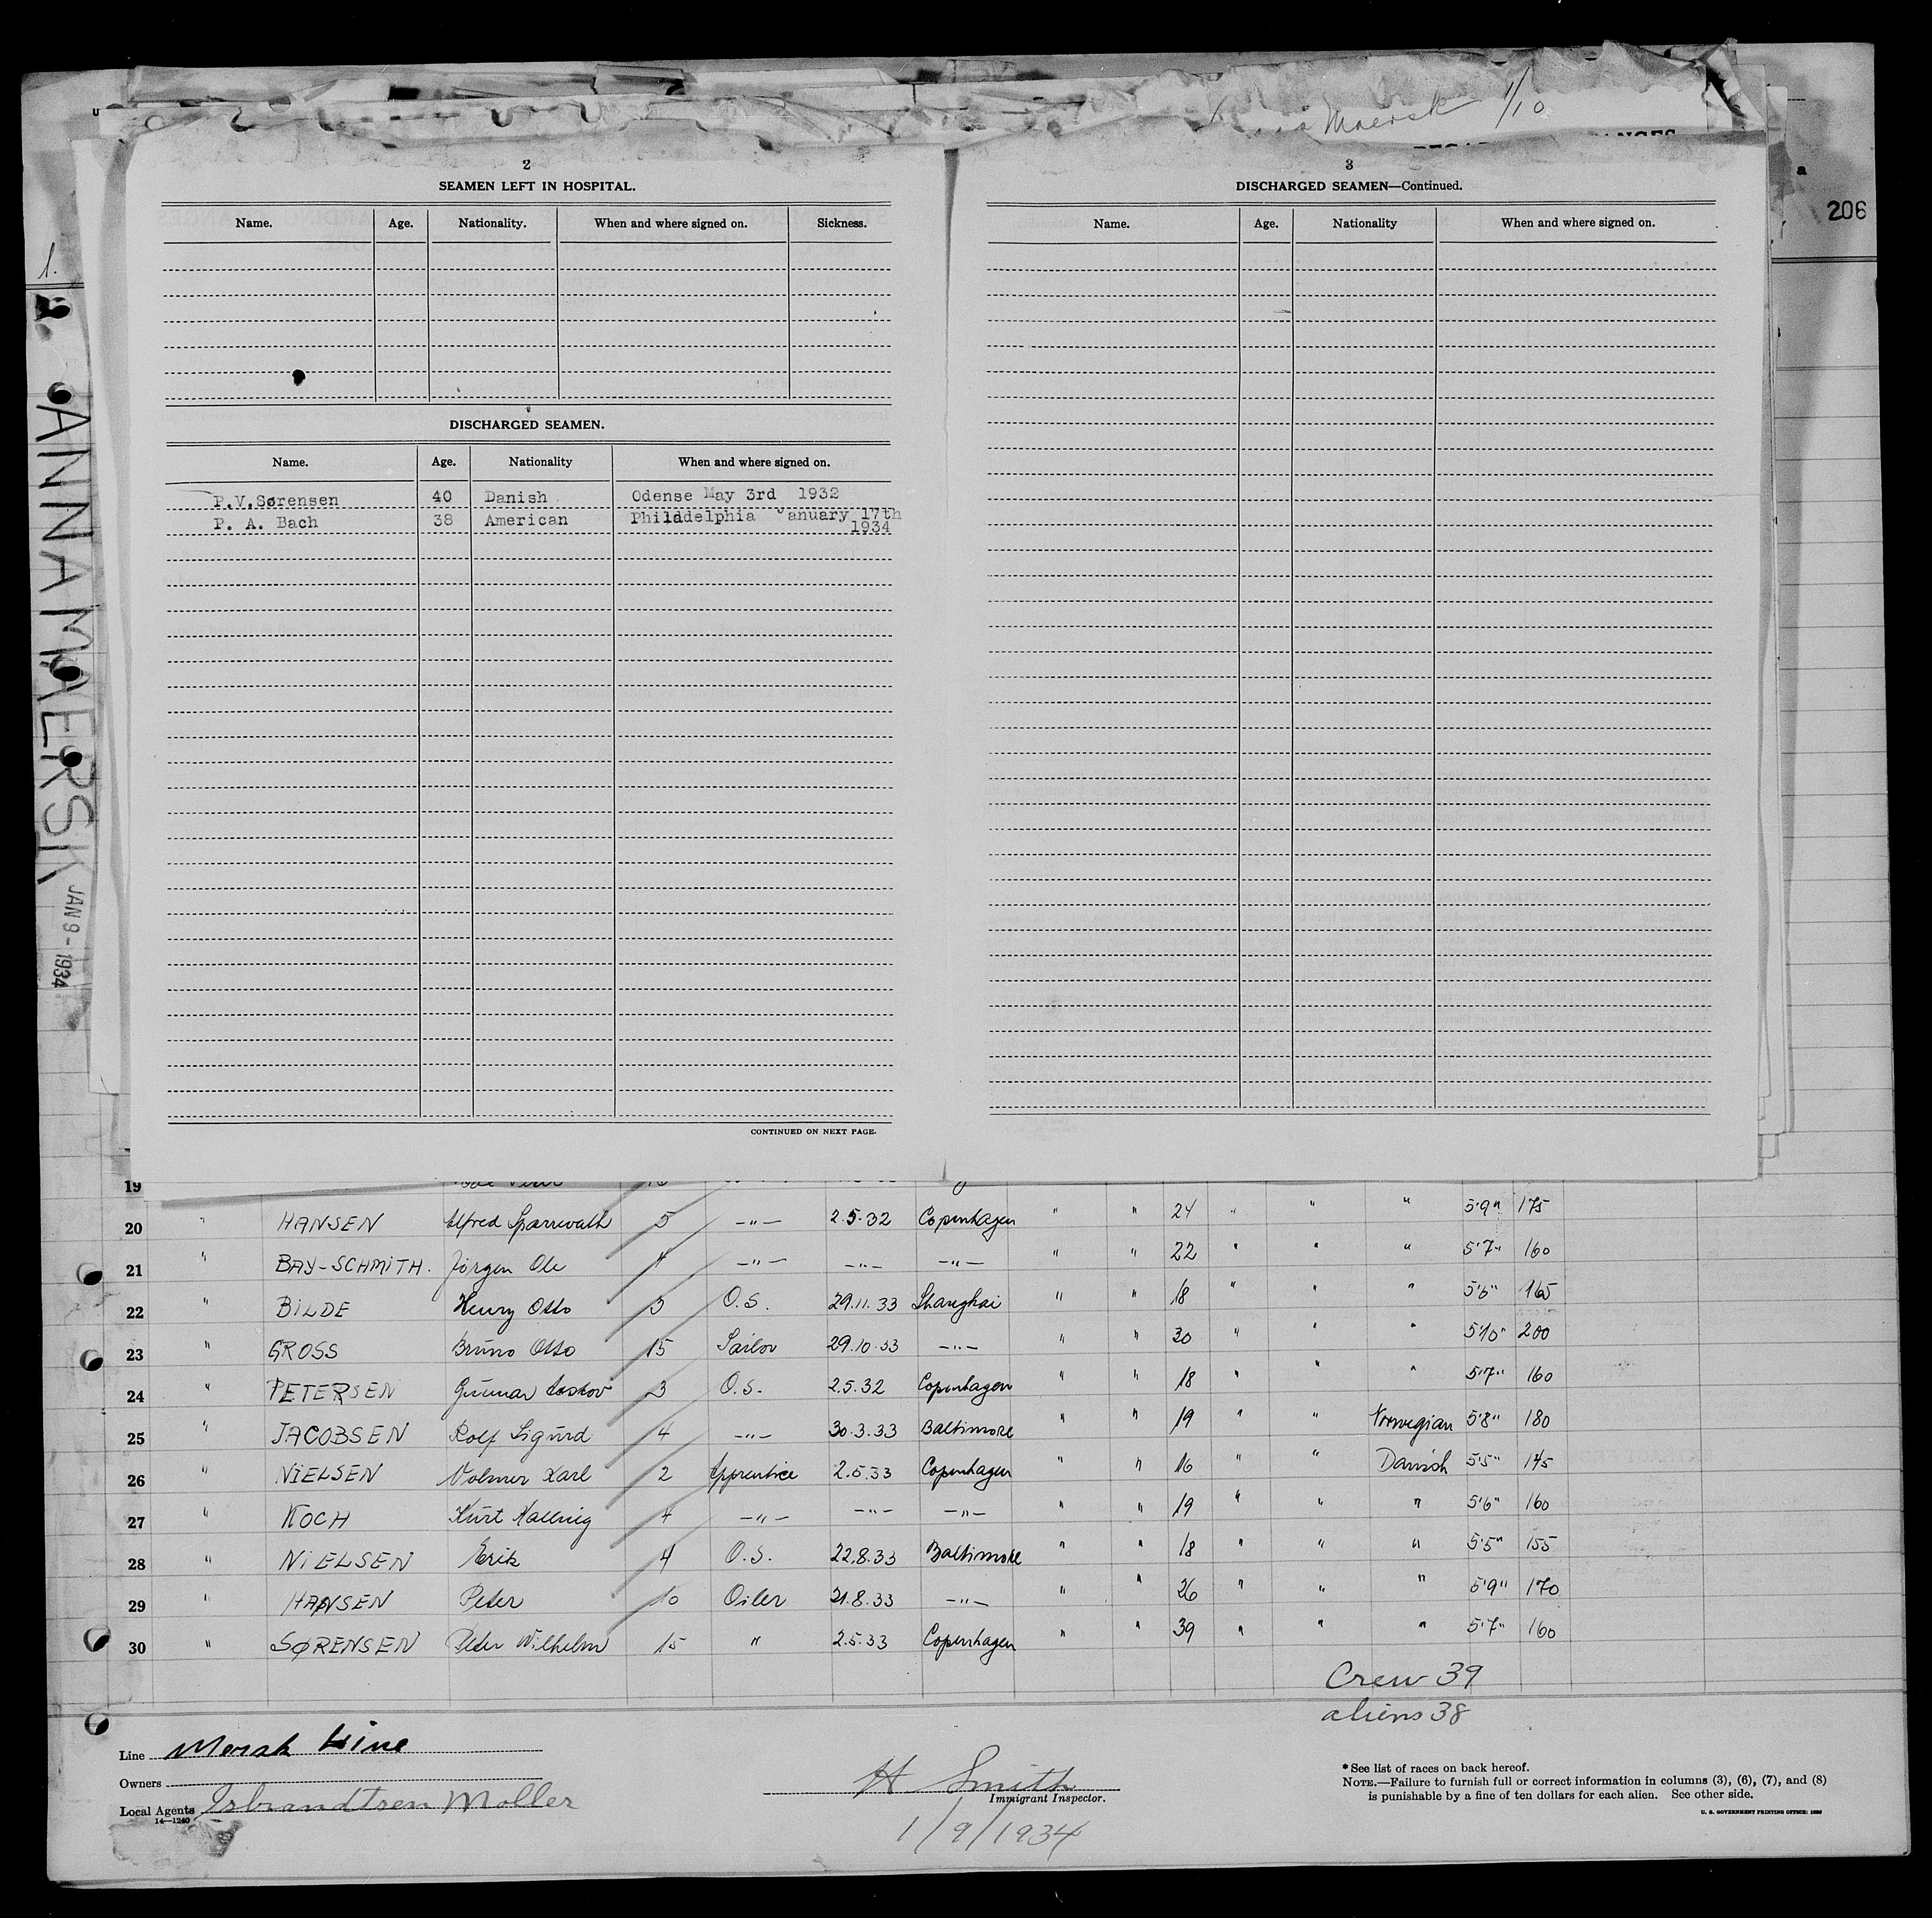 Maersk 1/10
206
1.
ANNA MAERSK JAN 9 - 1934
2
SEAMEN LEFT IN HOSPITAL.
Name. Age. Nationality. When and where signed on. Sickness.
DISCHARGED SEAMEN.
Name. Age. Nationality When and where signed on.
P.V.Sørensen 40 Danish Odense May 3rd 1932
P. A. Bach 38 American Philddelphia anuary 17th
1934
CONTINUED ON NEXT PAGE.
3
DISCHARGED SEAMEN—Continued.
Name. Age. Nationality When and where signed on.
19
20 " HANSEN Alfred 5 —"— 2.5.32 Copenhagen " " 24 " " " 5'9" 175
21 " BAY-SCHMITH. Jörgen Ole —"— —"— —"— " " 22 " " " 5'7" 160
22 " BILDE Henry Otto 3 O.S. 29.11.33 Shanghai " " 18 " " " 5'6" 165
23 " GROSS Bruno Otto 15 Sailor 29.10.33 —"— " " 30 " " " 5'10" 200
24 " PETERSEN Gunnar 3 O.S. 2.5.32 Copenhagen " " 18 " " " 5'7" 160
25 " JACOBSEN Rolf Sigurd 4 —"— 30.3.33 Baltimore " " 19 " " Norwegian 5'8" 180
26 " NIELSEN Volmer Karl 2 Apprentice 2.5.33 Copenhagen " " 16 " " Danish 5'5" 145
27 " KOCH Kurt 4 —"— —"— —"— " " 19 " " " 5'6" 160
28 " NIELSEN Erik 4 O.S. 22.8.33 Baltimore " " 18 " " " 5'5" 155
29 " HANSEN Peter 10 Oiler 21.8.33 —"— " " 26 " " " 5'9" 170
30 " SØRENSEN Peter Wilhelm 15 " 2.5.33 Copenhagen " " 39 " " " 5'7" 160
Crew 39
aliens 38
Line Mersk Line
Owners
Local Agents Isbrandtsen Moller
14—1240
H Smith
Immigrant Inspector.
1/9/1934
* See list of races on back hereof.
NOTE.—Failure to furnish full or correct information in columns (3), (6), (7), and (8)
is punishable by a fine of ten dollars for each alien. See other side.
U. S. GOVERNMENT PRINTING OFFICE: 1930